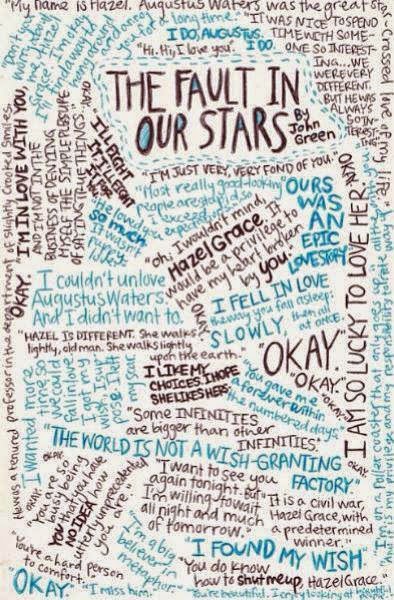 "My name is Hazel. Augustus Waters was the great star-crossed love of my life."
long time."
I DO, AUGUSTUS.
I DO.
"Hi. Hi, I love you."
"IT WAS NICE TO SPEND
TIME WITH SOME-
ONE SO INTEREST-
ING... WE
WERE VERY
DIFFERENT.
BUT HE WAS
ALWAYS
SO IN-
TEREST-
ING."
THE FAULT IN
OUR STARS
By
John
Green
I'M IN LOVE WITH YOU,
AND I'M NOT IN THE
BUSINESS OF DENYING
MYSELF THE SIMPLE PLEASURE
OF SAYING TRUE THINGS."
I'LL FIGHT
IT. I'LL FIGHT
IT
"I'M JUST VERY, VERY FOND OF YOU."
"Most really good-looking
people are stupid, so
I exceed
expectations."
"He loved you
so much
It wasn't
puppy
love."
"oh, I wouldn't mind,
Hazel Grace. It
would be a privilege to
have my heart broken
by you."
OURS
WAS
AN
EPIC
LOVE STORY
OKAY
I AM SO LUCKY TO LOVE HER."
I couldn't unlove
Augustus Waters.
And I didn't want to.
OKAY.
I FELL IN LOVE
the way you fall asleep:
SLOWLY, then all
at once.
"HAZEL IS DIFFERENT. She walks
lightly, old man. She walks lightly
upon the earth."
I LIKE MY
CHOICES. I HOPE
SHE LIKES HERS
"OKAY."
"OKAY."
"OKAY"
"You gave me
a forever within
the numbered days."
"Some INFINITIES
are bigger than other
INFINITIES."
"THE WORLD IS NOT A WISH-GRANTING
FACTORY"
OKAY.
He was a tenured professor in the department of slightly Crooked Smiles.
You are so
busy being
YOU that you have
NO IDEA how
utterly unprecedented
you are."
"I want to see you
again tonight. But
I'm willing to wait
all night and much
of tomorrow."
"It is a civil war,
Hazel Grace, with
a predetermined
winner."
"I'm on a roller coaster that only goes up
and it is my privilege and my responsibility to ride all the way up with you."
"You're a hard person
to comfort."
"I'm a big
believer in
metaphor."
"I FOUND MY WISH."
"You do know
how to shut me up, Hazel Grace."
"OKAY."
"I miss him."
"You're beautiful. I enjoy looking at beautiful